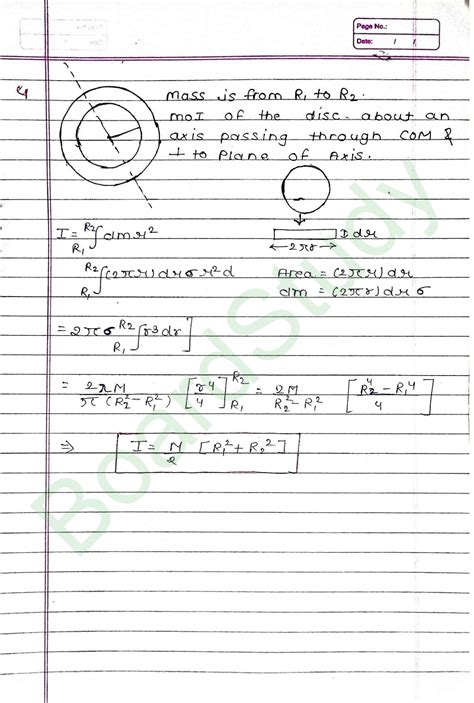 Page No.:
Date: / /
4
mass is from R₁ to R₂.
moI of the disc about an
axis passing through COM &
⊥ to Plane of Axis.
I = R₁∫R₂ dm r²
I dr
← 2πr →
R₁∫R₂ (2πr) dr σ r² d
Area = (2πr) dr
dm = (2πr) dr σ
= 2πσ R₁∫R₂ r³ dr]
= 2πM / π(R₂² - R₁²) [r⁴/4]R₁R₂ = 2M / R₂² - R₁² [R₂⁴ - R₁⁴ / 4]
⇒ I = M/2 [R₁² + R₂²]
BoardStudy